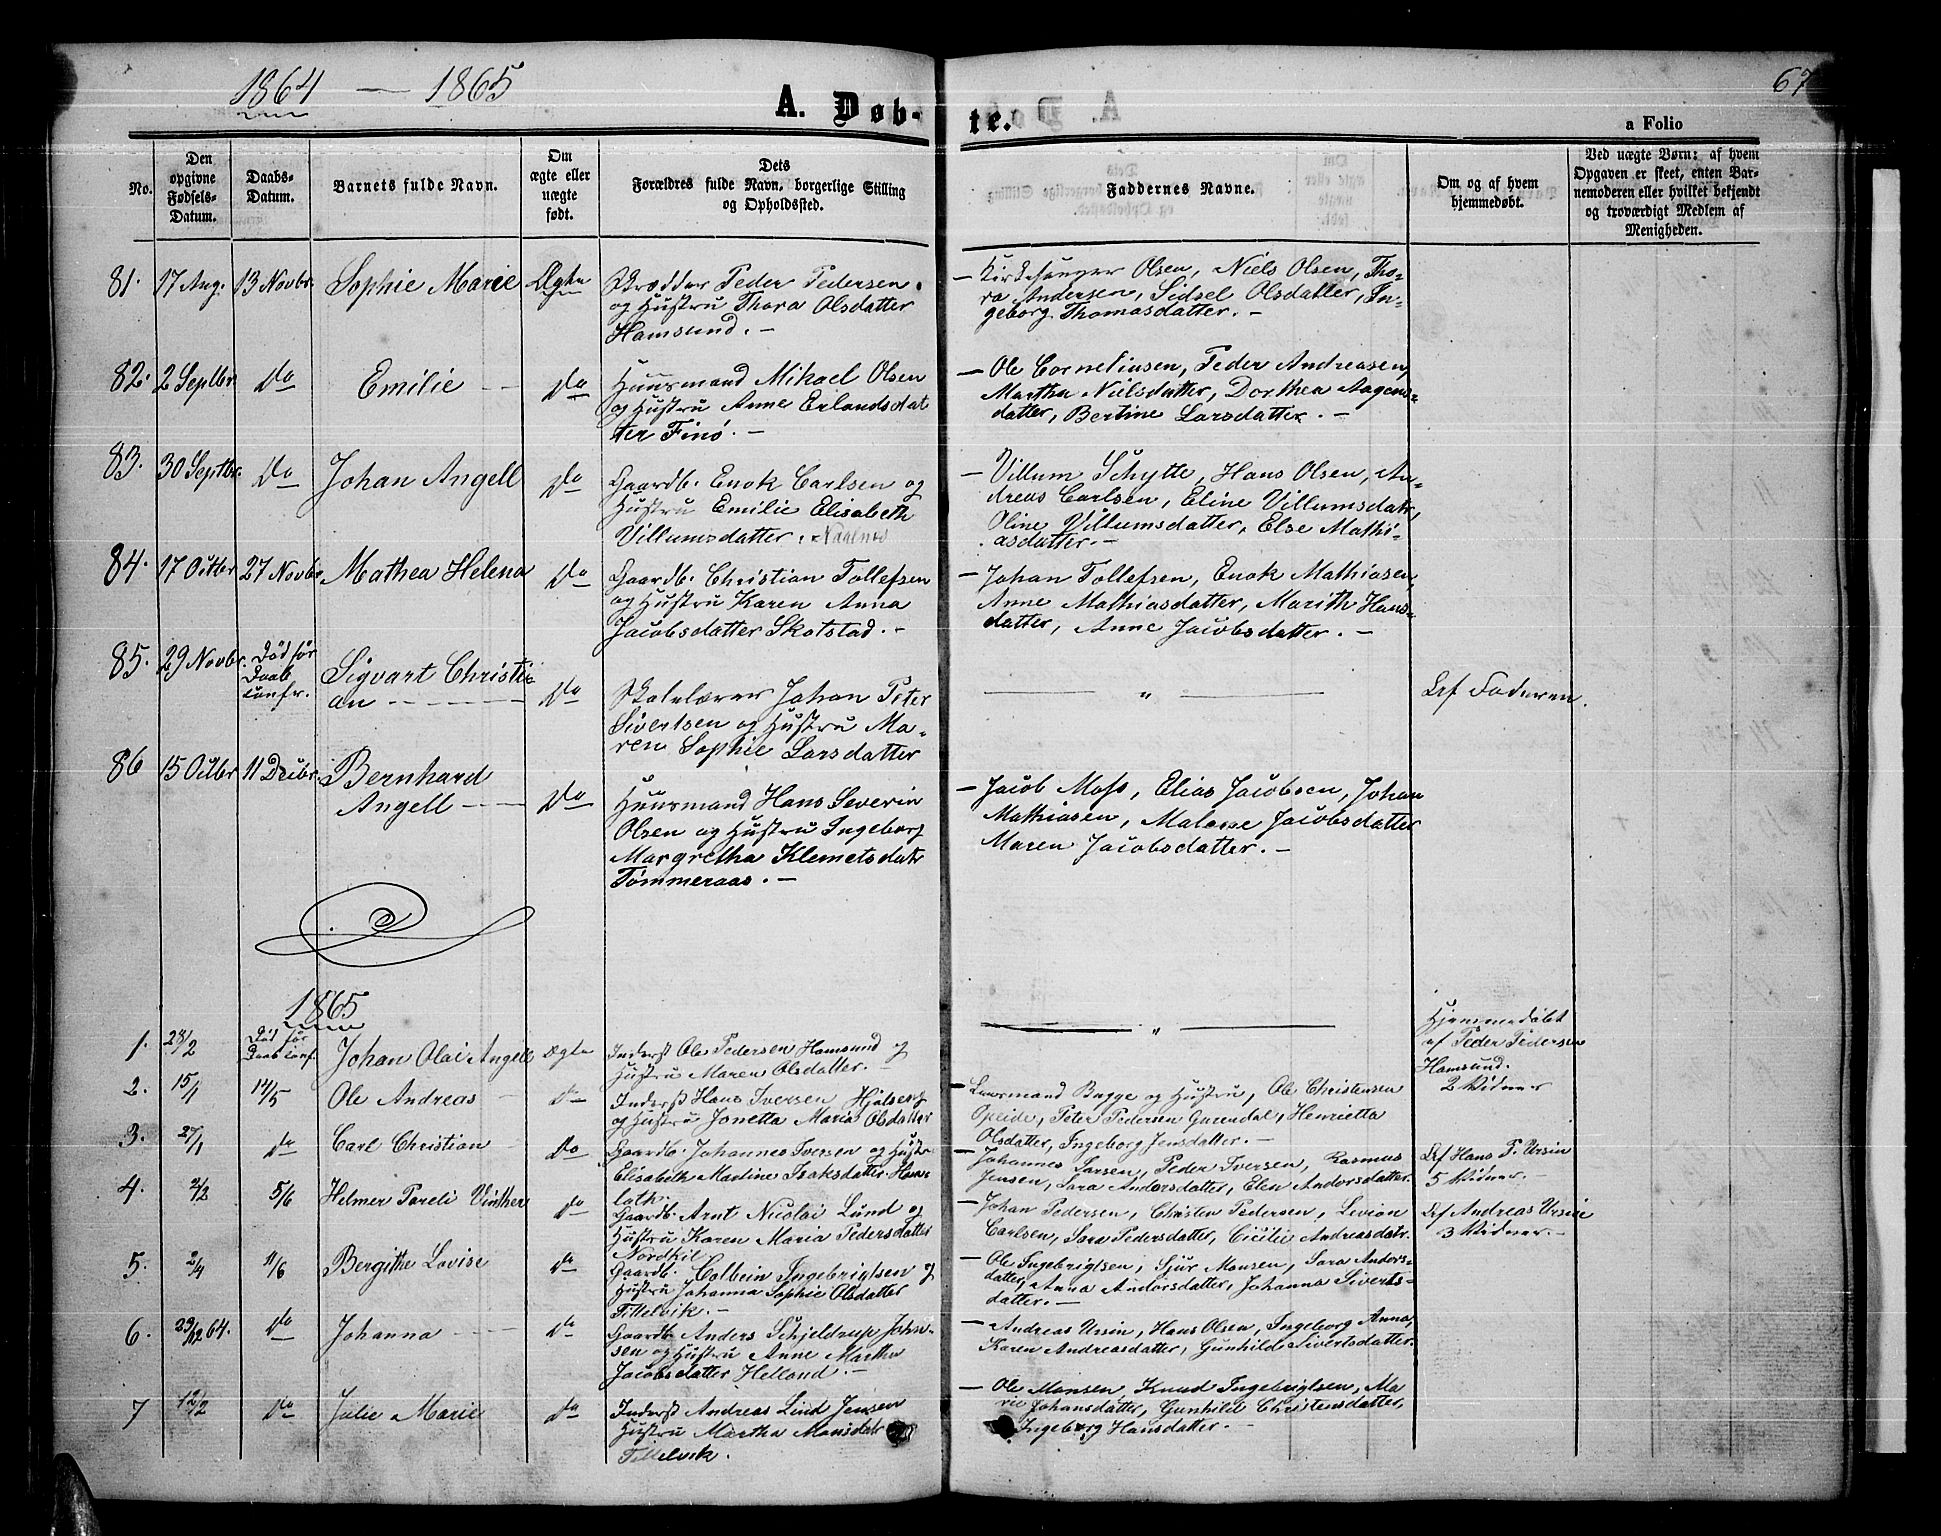 1864 — 1865
A. Døb-
te.
67
a Folio
No.
Den opgivne Fødsels-Datum.
Daabs-Datum.
Barnets fulde Navn.
Om ægte eller uægte født.
Dets Forældres fulde Navn, borgerlige Stilling og Opholdssted.
Faddernes Navne.
Om og af hvem hjemmedøbt.
Ved uægte Børn: af hvem Opgaven er skeet, enten Barnemoderen eller hvilket bekjendt og troværdigt Medlem af Menigheden.
81. 17 Aug. 13 Novbr. Sophie Marie Ægte
Skrædder Peder Pedersen
og Hustru Thora Olsdatter
Hamsund. —
— Kirkesanger Olsen, Niels Olsen, Tho-
ra Andersen, Sidsel Olsdatter, In-
geborg Thomasdatter. —
82. 2 Septbr Do Emilie Do
Huusmand Mikael Olsen
og Hustru Anne Erlandsdat
ter Finø. —
— Ole Corneliusen, Peder Andreasen,
Martha Nielsdatter, Dorthea Aagens-
datter, Bertine Larsdatter. —
83. 30 Septbr. Do Johan Angell Do
Gaardb. Enok Carlsen og
Hustru Emilie Elisabeth
Villumsdatter.
— Villum Schytte, Hans Olsen, An-
dreas Carlsen, Eline Villumsdatr,
Oline Villumsdatter, Else Mathi-
asdatter. —
84. 17 Octbr 27 Novbr. Mathea Helena Do
Gaardb. Christian Tollefsen
og Hustru Karen Anna
Jacobsdatter Skotstad. —
— Johan Tollefsen, Enok Mathiasen,
Anne Mathiasdatter, Marith Hans-
datter, Anne Jacobsdatter. —
85. 29 Novbr. Død før
Daab
confr.
Sigvart Christi-
an — Do
Skolelærer Johan Peter
Sivertsen og Hustru Ma-
ren Sophie Larsdatter
— " —
Af Faderen.
86 15 Octbr 11 Decbr. Bernhard
Angell — Do
Huusmand Hans Severin
Olsen og Hustru Ingeborg
Margretha Klemetsdatr
Tømmeraas. —
— Jacob Moss, Elias Jacobsen, Johan
Mathiasen, Malene Jacobsdatter
Maren Jacobsdatter. —
1865
1. 28/2 Død før
Daab conf. Johan Olai Angell ægte
Inderst Ole Pedersen Hamsund og
Hustru Maren Olsdatter. —
— " —
Hjemmedøbt
af Peder Pedersen
Hamsund.
2 Vidner
2. 15/1 14/5 Ole Andreas Do
Inderst Hans Iversen
og Hustru Jonetta Maria Olsdatter
— Lensmand Bugge og Hustru, Ole Christensen
Opeide, Peter Pedersen Henrietta
Olsdatter, Ingeborg Jensdatter. —
3. 27/1 do Carl Christian Do
Gaardb. Johannes Iversen og Hustr.
Elisabeth Martine Isaksdatter
— Johannes Larsen, Peder Iversen, Rasmus
Jensen, Sara Andorsdatter, Elen Andorsdatter.
Af Hans P. Ursin
5 Vidner. —
4. 2/2 5/6 Helmer Pareli Vinther do
Gaardb. Arnt Nicolai Lund og
Hustru Karen Maria Pedersdatter
Nordkil
— Johan Pedersen, Christen Pedersen, Levion
Carlsen, Sara Pedersdatter, Cicilie Andreasdatr.
Af Andreas Ursin
3 Vidner. —
5. 2/4 11/6 Bergithe Lovise do
Gaardb. Colbein Ingebrigtsen og
Hustru Johanna Sophie Olsdatter
Tillelvik. —
— Ole Ingebrigtsen, Sjur Monsen, Sara Andors-
datter, Anna Andorsdatter, Johanna Siverts-
datter. —
6. 29/12 64. do Johanna — do
Gaardb. Anders Schjeldrup John-
sen og Hustru Anne Martha
Jacobsdatter Helland. —
— Andreas Ursin, Hans Olsen, Ingeborg Anna,
Karen Andreasdatter, Gunhild Sivertsdatter.
7 12/2 do Julie Marie do
Inderst Andreas Lind Jensen
Hustru Martha Monsdatr
Tillelvik.
— Ole Monsen, Knud Ingebrigtsen, Ma
rie Johansdatter, Gunhild Christensdatter,
Ingeborg Hansdatter. —